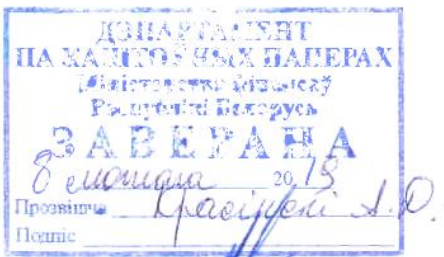 ДЭПАРТАМЕНТ
ПА КАШТОЎНЫХ ПАПЕРАХ
Міністэрства фінансаў
Рэспублікі Беларусь
ЗАВЕРАНА
8 лютага 2013
Прозвішча Красінскі А.О.
Подпіс